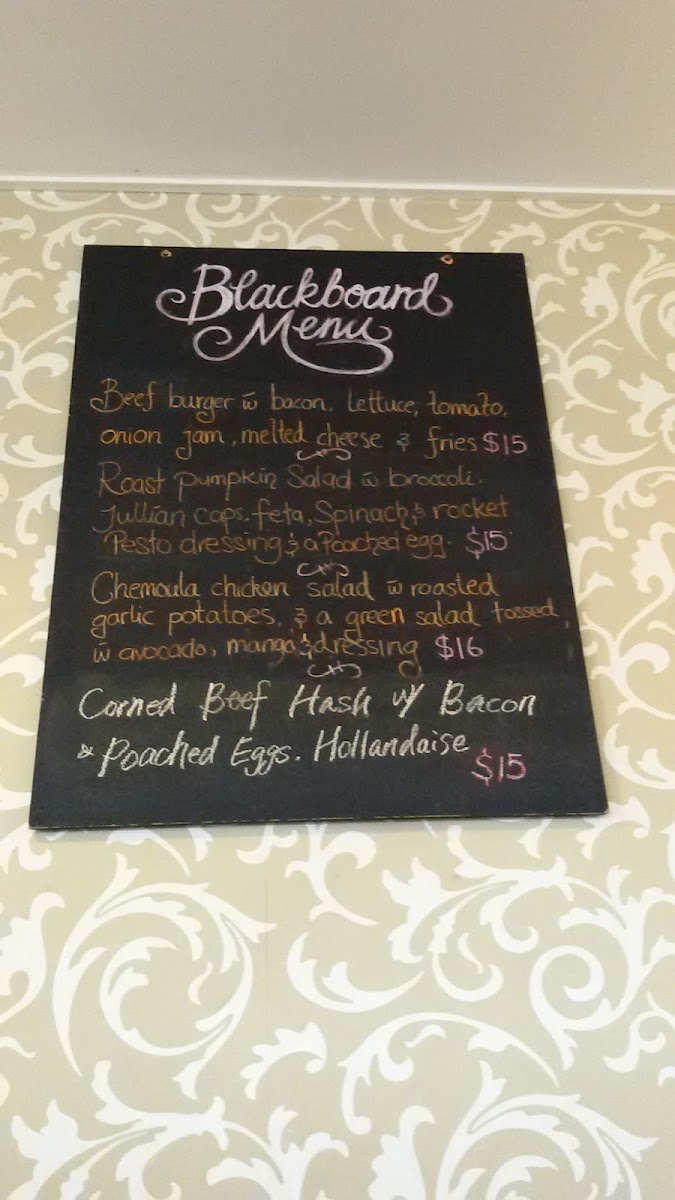 Blackboard
Menu
Beef burger w̄ bacon, lettuce, tomato,
onion jam, melted cheese & fries $15
Roast pumpkin Salad w̄ broccoli,
Jullian caps, feta, Spinach & rocket
Pesto dressing & a Poached egg. $15
Chemoula chicken salad w̄ roasted
garlic potatoes, & a green salad tossed,
w̄ avocado, mango & dressing $16
Corned Beef Hash w/ Bacon
& Poached Eggs. Hollandaise
$15